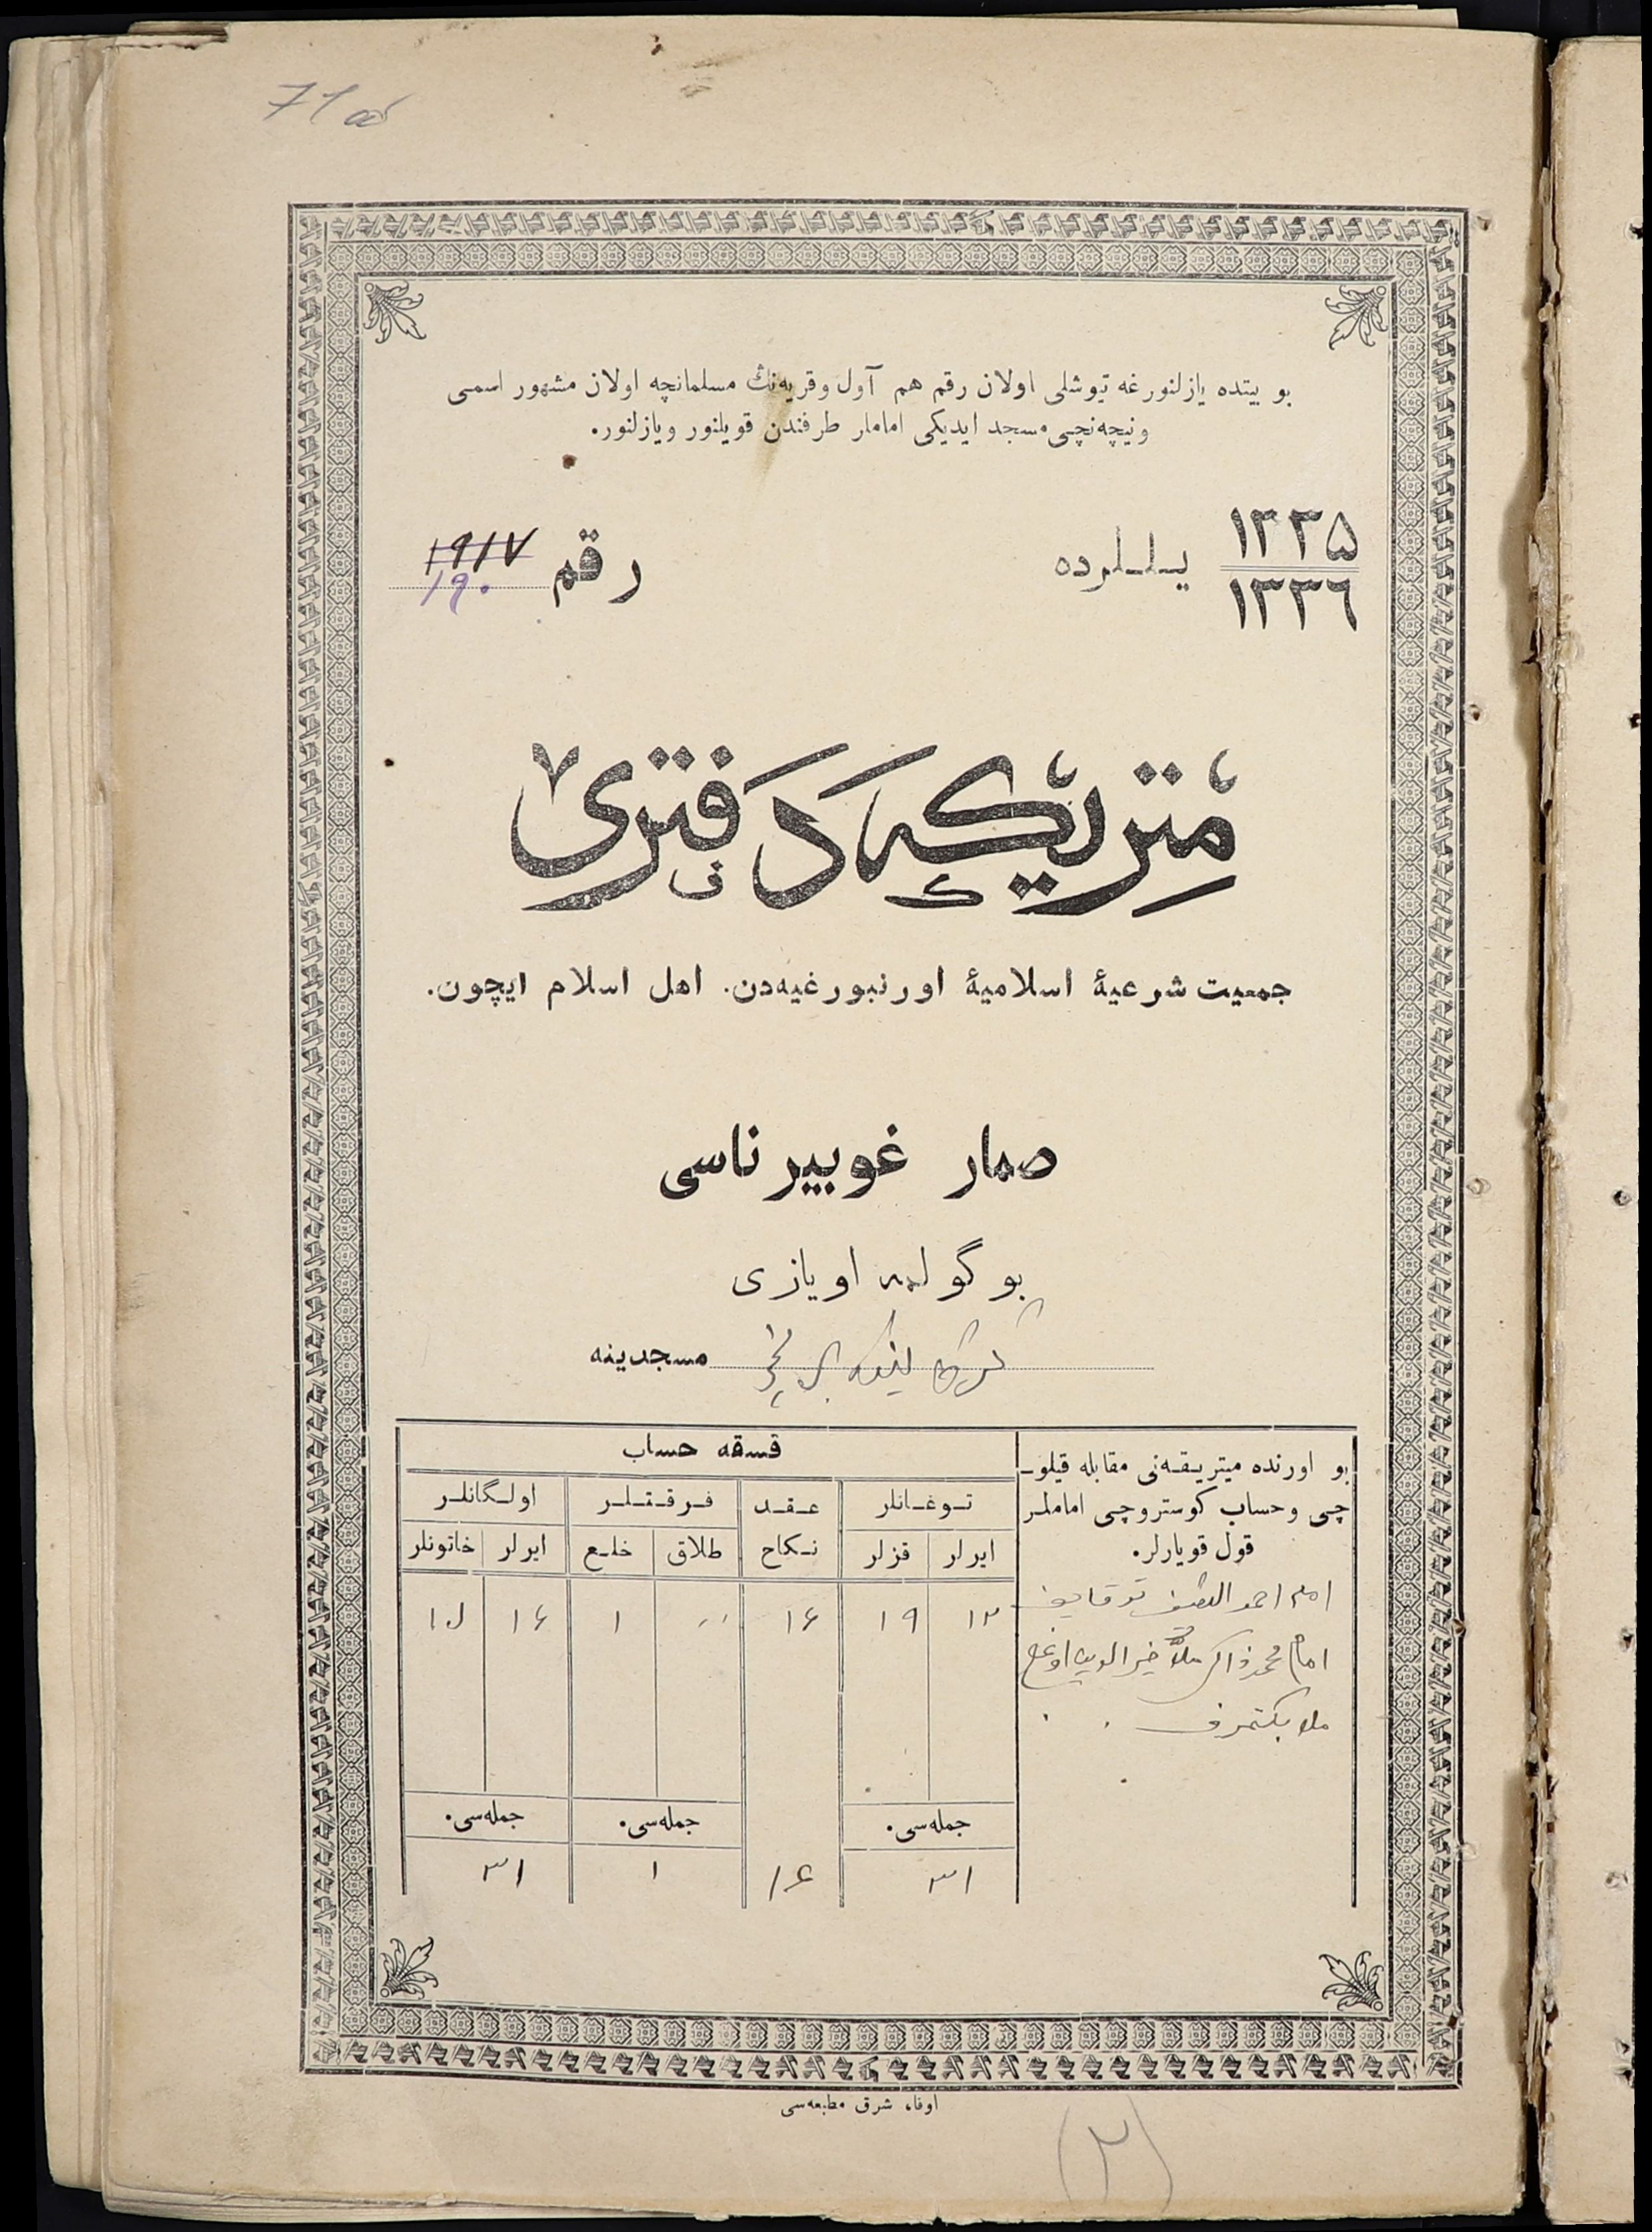 بو بیتده یازلنورغه تیوشلی اولان رقم هم آول وقریه‌نڭ مسلمانچه اولان مشهور اسمی
ونیچه‌نچی مسجد ایدیکی امامار طرفندن قویلنور ویازلنور.
۱۳۳۵
۱۳۳٦
یـلـلرده
رقم
۱۹۱۷
۱۹۰
متریکه دفتری
جمعیت شرعیهٔ اسلامیهٔ اورنبورغیه‌دن. اهل اسلام ایچون.
صمار غوبیرناسی
بوگولمه اویازی
مسجدینه
بو اورنده میتریـقـه‌نی مقابله قیلو-
چی وحساب کوستروچی اماملر
قول قویارلر.
امام احمد اللطیف توقایف
امام محمد ذاکر ملا خیرالدین اوغلی
ملا بکتمرف
قسقه حساب
تـوغـانلر
عـقـد
فـرقـتـلـر
اولـگانلـر
ایرلر
قزلر
نـکاح
طلاق
خلـع
ایرلر
خاتونلر
۱۲
۱۹
۱۶
۱
۱۶
۱۵
جمله‌سی.
جمله‌سی.
جمله‌سی.
۳۱
۱۶
۱
۳۱
اوفا، شرق مطبعه‌سی
(۲)